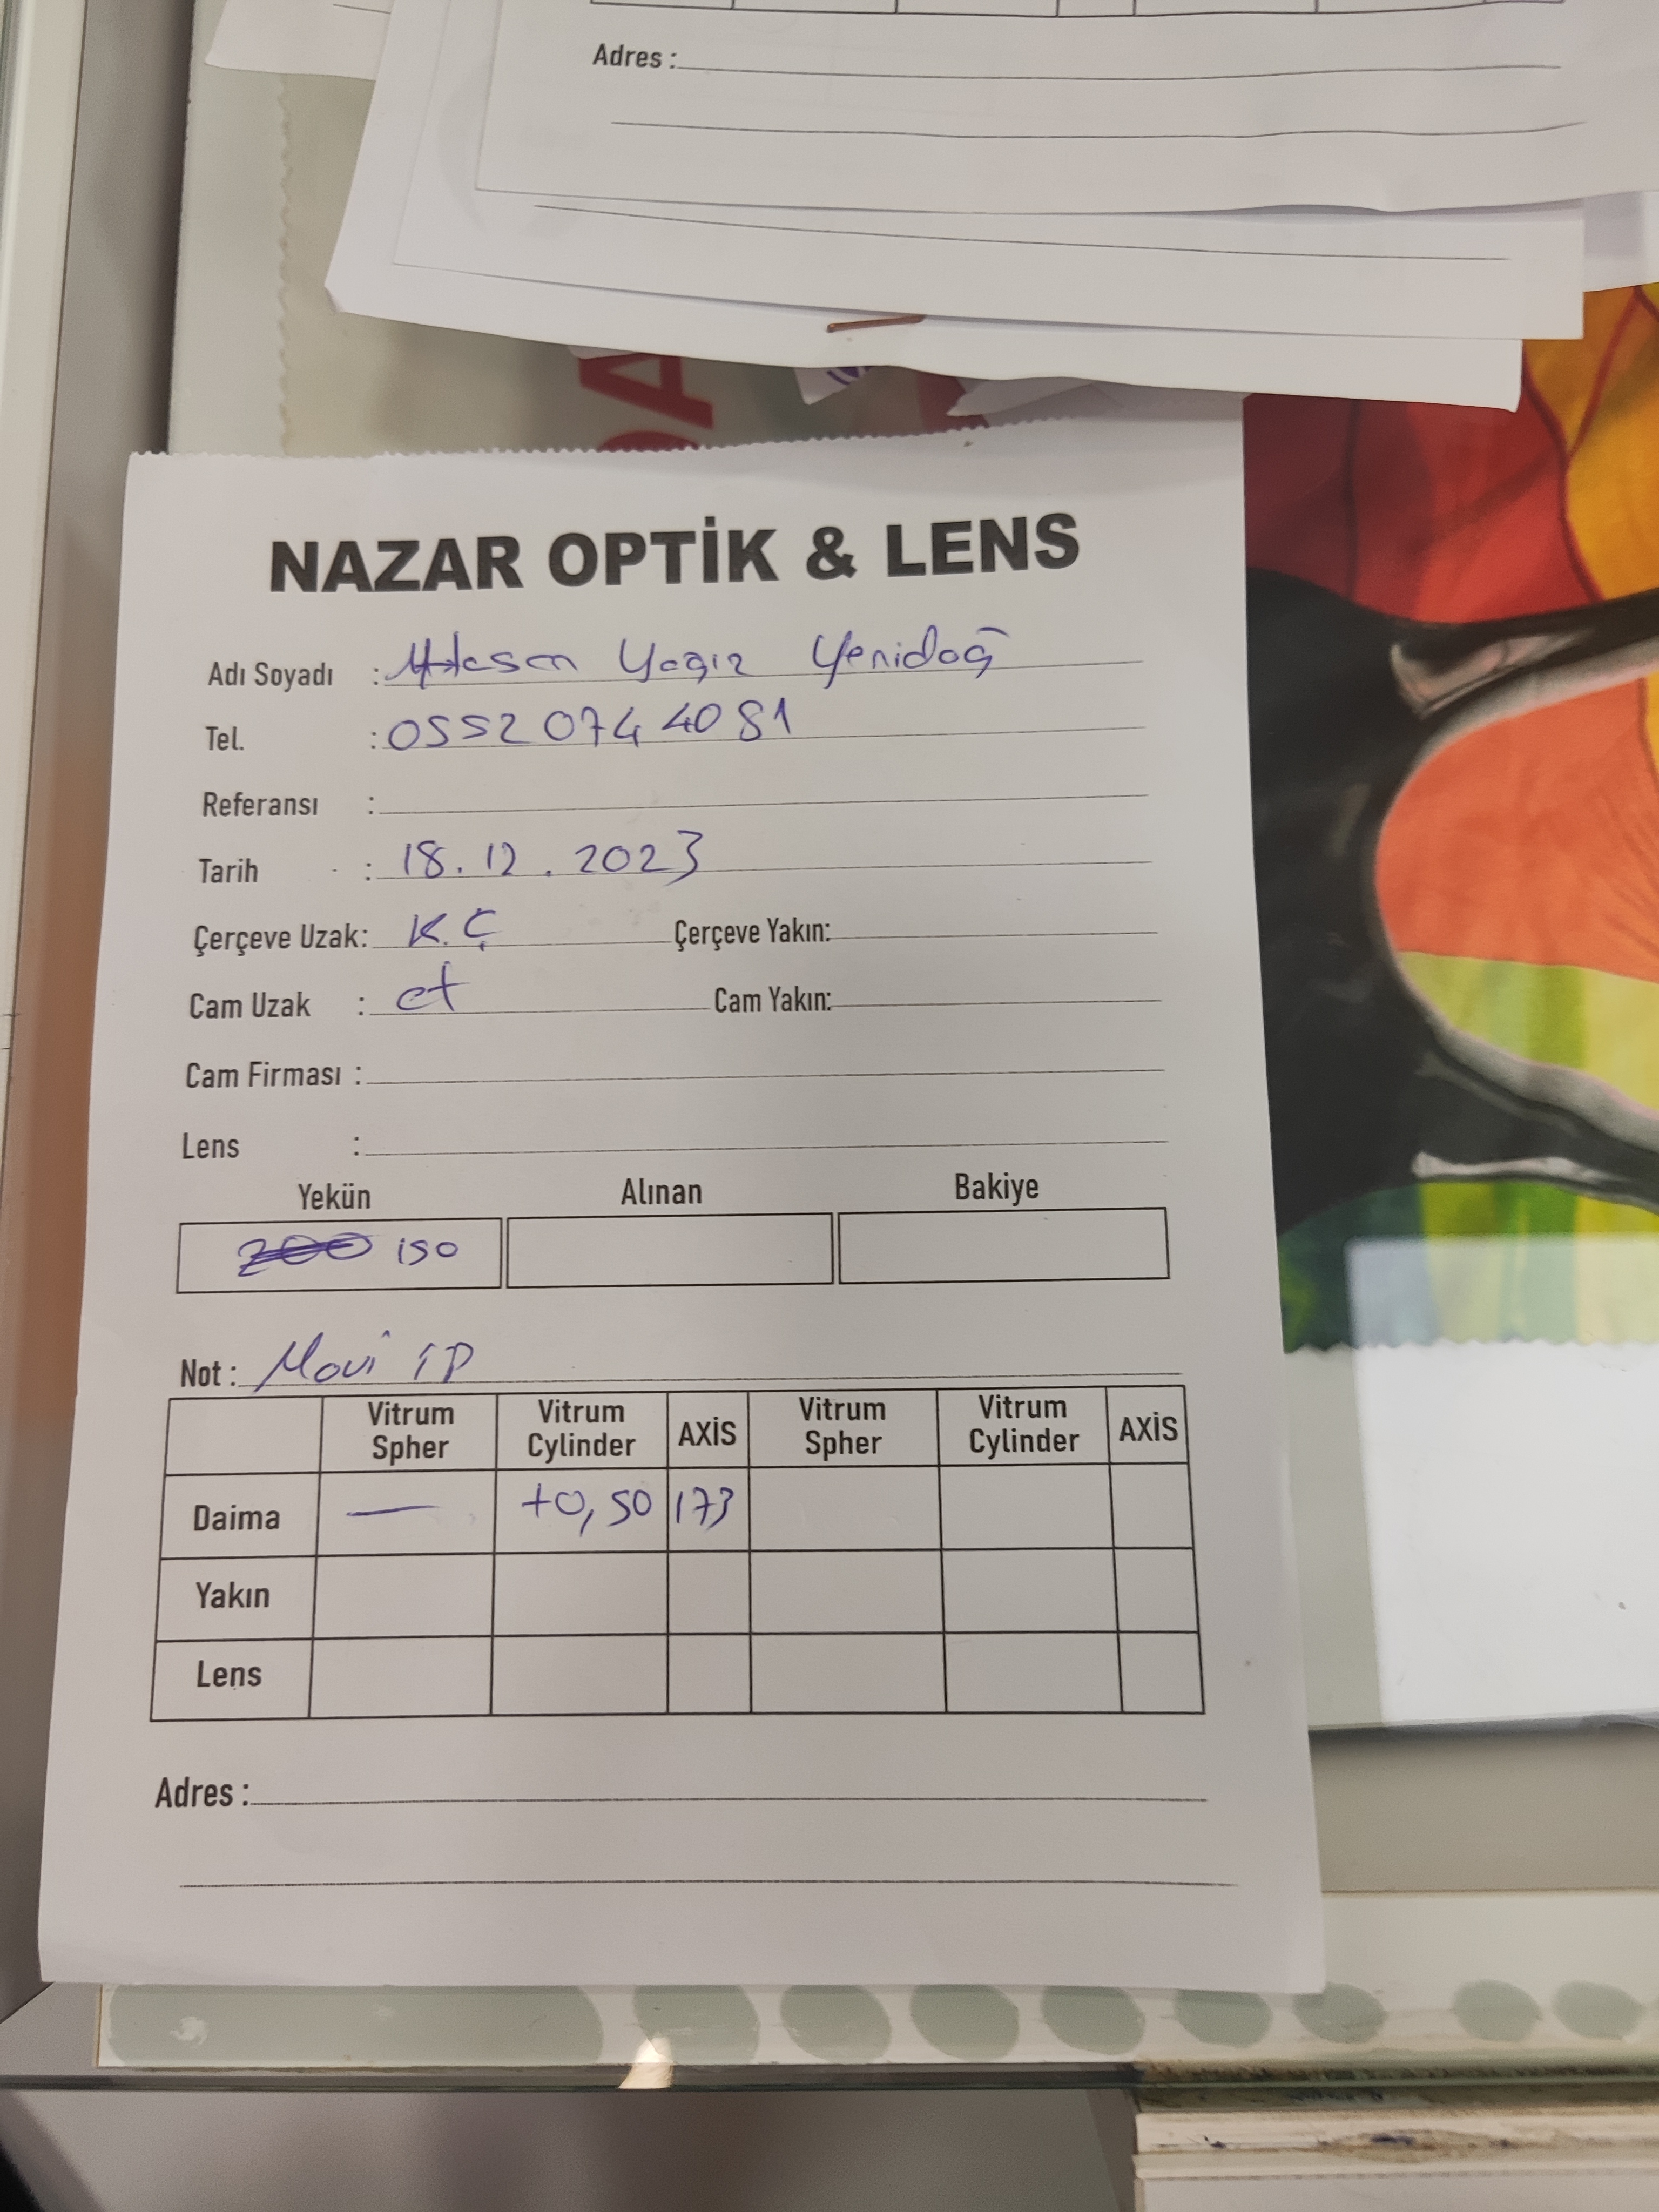 Adres :
DA
NAZAR OPTİK & LENS
Adı Soyadı : Hasan Yağız Yenidoğ
Tel. : 0552 074 4081
Referansı :
Tarih : 18.12.2023
Çerçeve Uzak: K.Ç Çerçeve Yakın:
Cam Uzak : et Cam Yakın:
Cam Firması :
Lens :
Yekün Alınan Bakiye
200 150
Not : Mavi İP
Vitrum Spher Vitrum Cylinder AXİS Vitrum Spher Vitrum Cylinder AXİS
Daima — +0,50 173
Yakın
Lens
Adres :